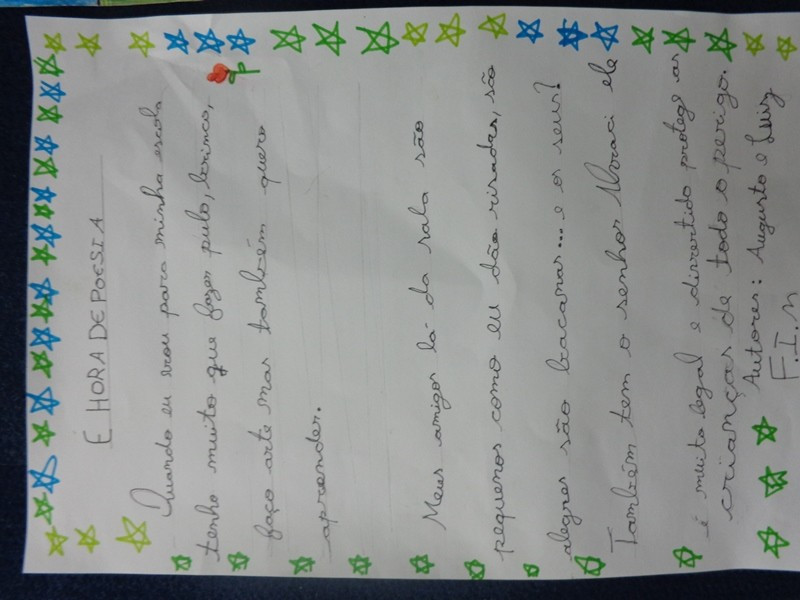 E HORA DE POESIA
Quando eu vou para minha escola
tenho muito que fazer pulo, brinco,
faço arte mas também quero
aprender.
Meus amigos lá da sala são
pequenos como eu dão risadas, são
alegres são bacanas... e os seus?
Também tem o senhor Moraci ele
é muito legal e divertido protege as
crianças de todo o perigo.
Autores: Augusto e Luiz
F.I.M